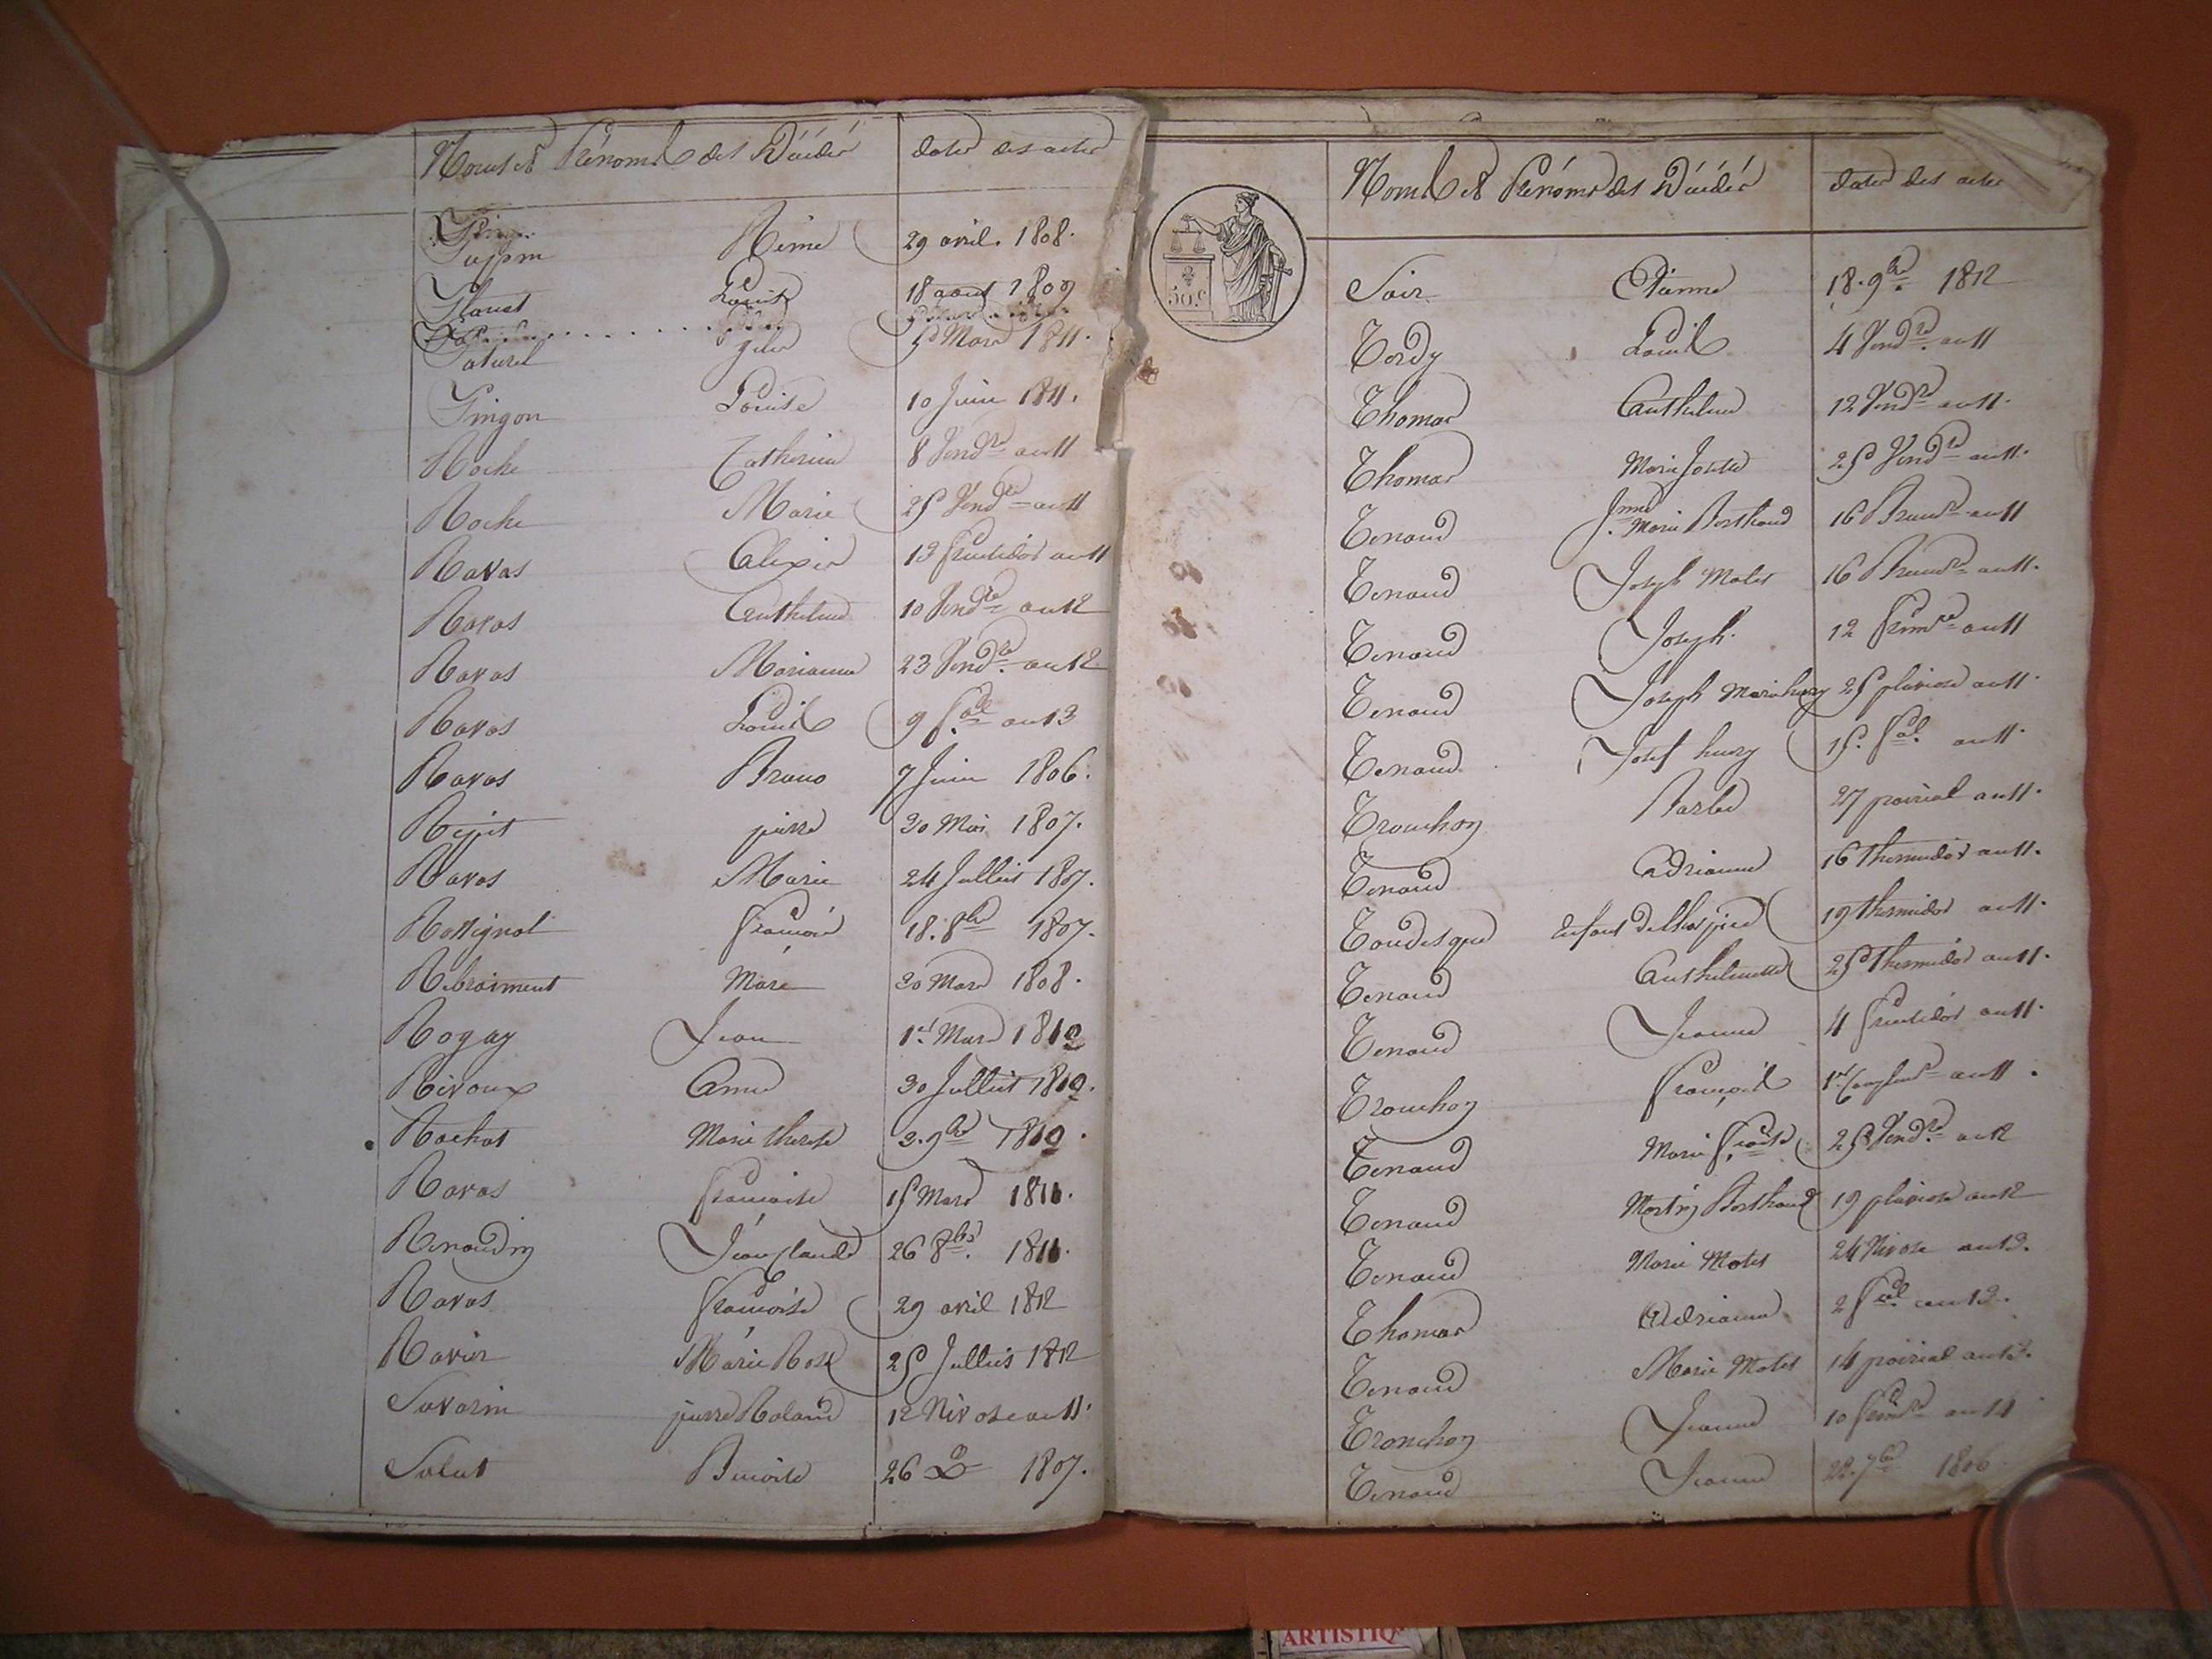 Noms et Prénoms des Décédés dates des actes
Pujpin Reine 29 avril. 1808.
Planet Louise 18 aout 1809
Paturel Gile 5 Mars 1811.
Pingon Louise 10 Juin 1811.
Roche Catherine 8 Vendre an 11
Roche Marie 25 Vendre an 11
Ravas Alexis 13 fructidor an 11
Ravas Anthelme 10 Vendre an 12
Ravas Marianne 23 Vendre. an 12
Ravas Louis 9 fal an 13
Ravas Bruno 7 Juin 1806.
Rejet pierre 30 Mai 1807.
Ravas Marie 24 Juillet 1807.
Rossignol François 18. 8bre 1807.
Rebraiment Marie 30 Mars 1808.
Rogay Jean 1er Mars 1810
Rivoux Anne 30 Juillet 1810.
Rochat Marie therese 3. 9bre 1810.
Ravas françoise 15 Mars 1811.
Renaudin Jean Claude 26 8bre. 1811.
Ravas françoise 29 avril 1812
Ravier Marie Rose 25 Juillet 1812
Savarin pierre Roland 12 Nivose an 11.
Salut Benoite 26 1807.
Noms et Prénoms des Décédés dates des actes
50 c
Soir Etienne 18. 9bre. 1812
Tordy Louis 4 Vendre. an 11
Thomas Anthelme 12 Vendre an 11.
Thomas Marie Josete 25 Vendre an 11.
Tenand Jnne Marie Berthaud 16 Brumre an 11
Tenand Joseph Molet 16 Brumre an 11.
Tenand Joseph. 12 frimre an 11
Tenand Joseph Marie hury 25 pluviose an 11.
Tenand Josef hury 15. fal. an 11.
Tronchon Barbe 27 prairial an 11.
Tenand Adrianne 16 thermidor an 11.
Toudesque enfant de l'hospice 19 thermidor an 11.
Tenand Anthelmette 25 thermidor an 11.
Tenand Jeanne 4 fructidor an 11.
Tronchon François 1er Complre an 11.
Tenand Marie fçoise 25 Vendre. an 12
Tenand Martin Berthaud 19 pluviose an 12
Tenand Marie Molet 24 Nivose an 13.
Thomas Adrianne 2 fal. an 13.
Tenand Marie Molet 14 prairial an 13.
Tronchon Jeanne 10 frimre an 14
Tenand Jeanne 22. 7bre 1806
ARTISTIQ